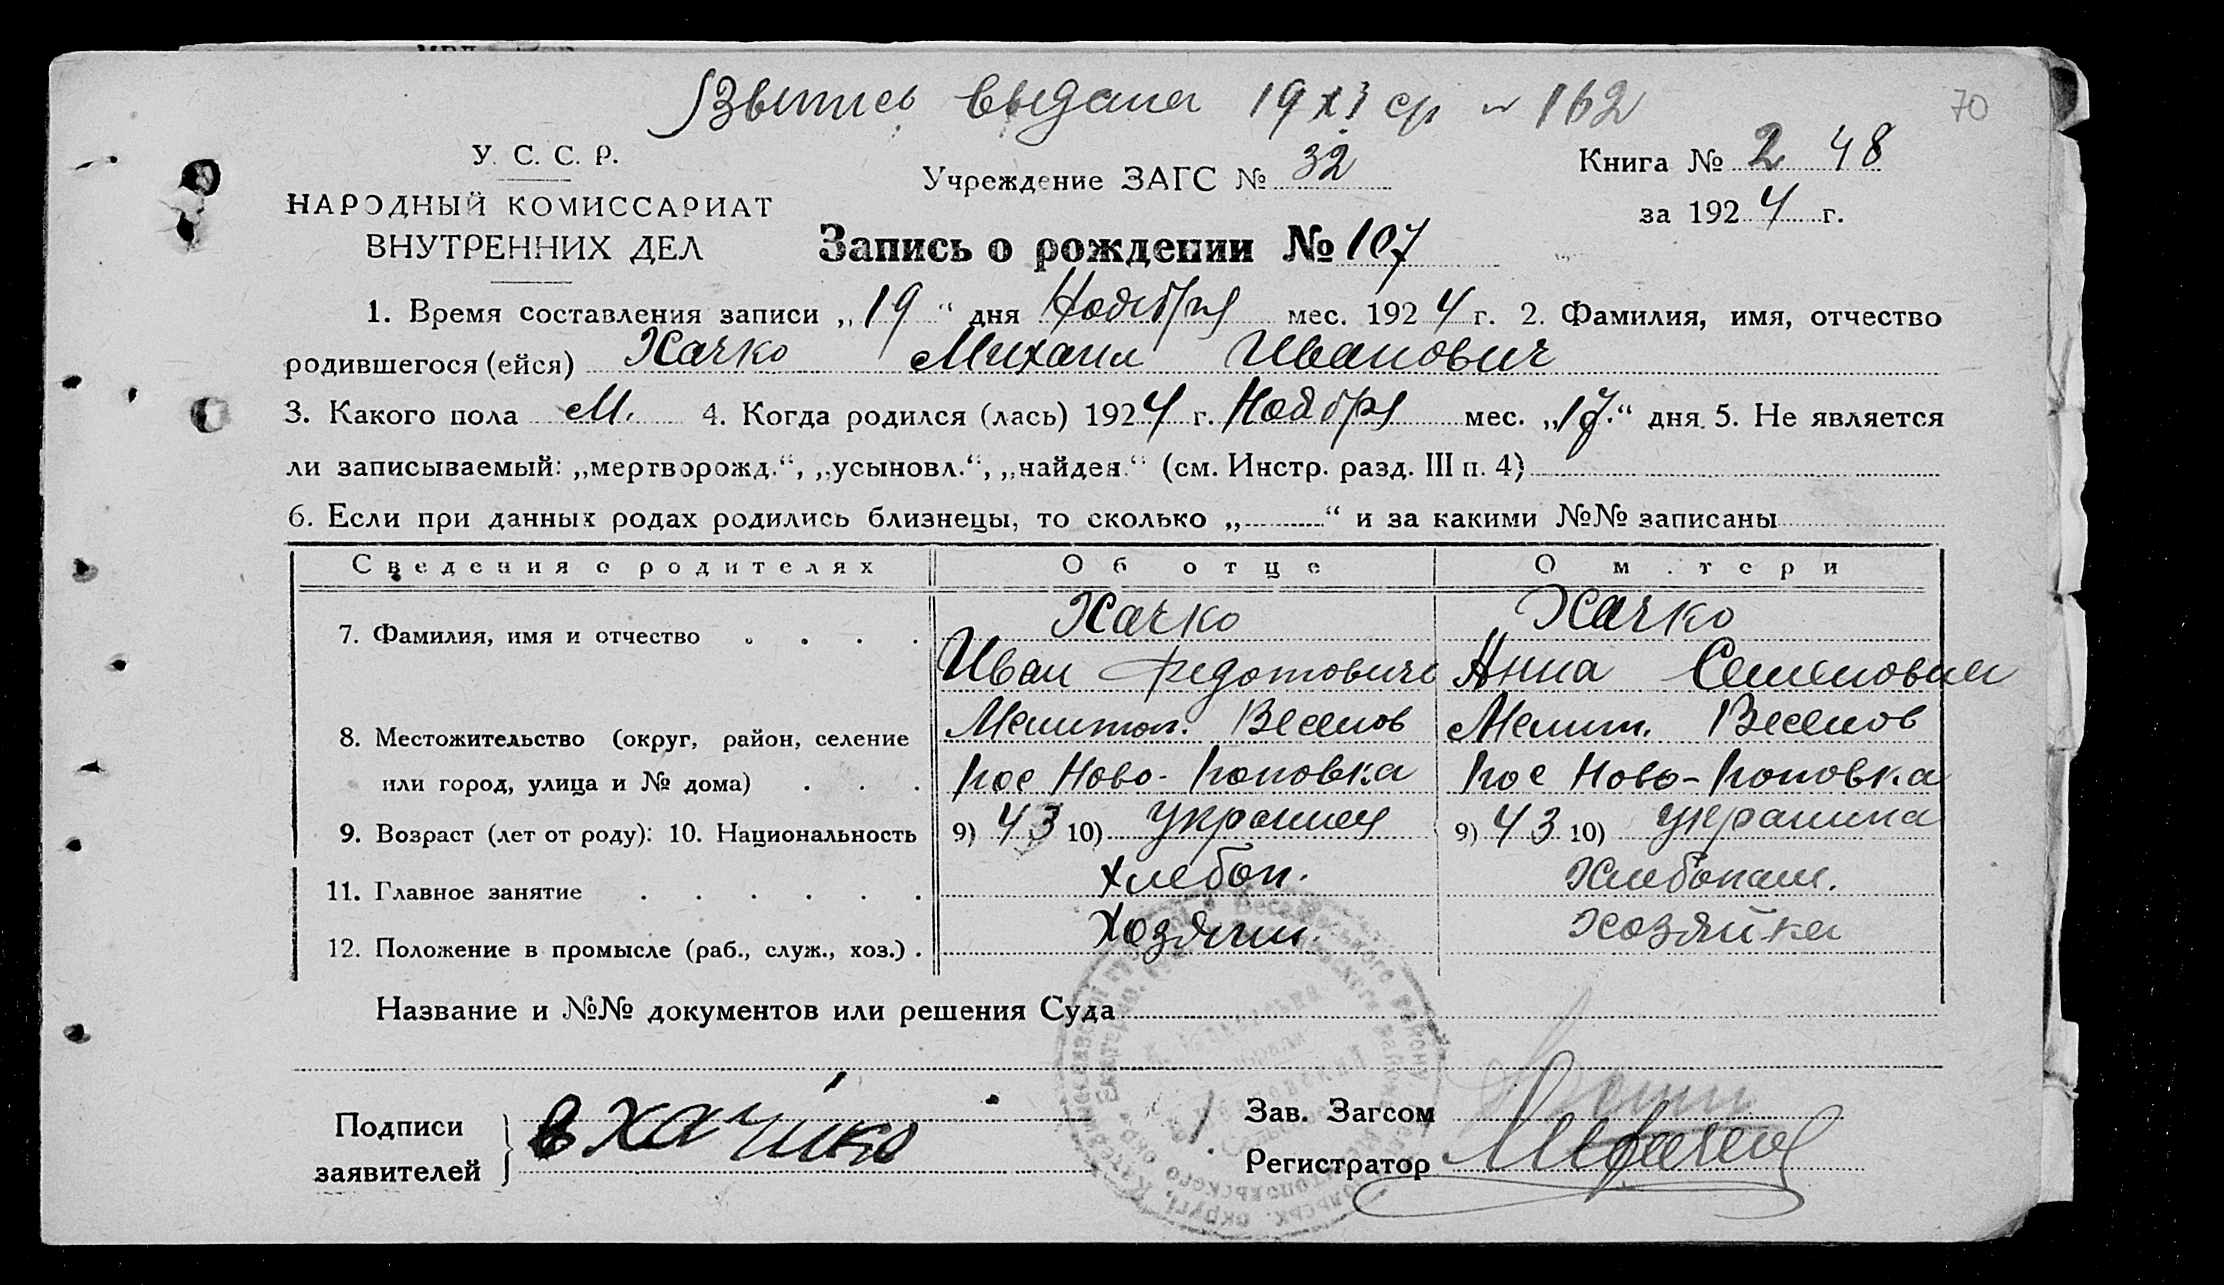 Взыпись выдана 19 XI ср № 162
70
У. С. С. Р.
НАРОДНЫЙ КОМИССАРИАТ
ВНУТРЕННИХ ДЕЛ
Учреждение ЗАГС № 32
Книга № 2 48
за 1924 г.
Запись о рождении № 107
1. Время составления записи „19“ дня Ноября мес. 1924 г. 2. Фамилия, имя, отчество
родившегося (ейся) Хачко Михаил Иванович
3. Какого пола М. 4. Когда родился (лась) 1924 г. Ноября мес. „17“ дня. 5. Не является
ли записываемый: „мертворожд.“, „усыновл.“, „найден.“ (см. Инстр. разд. III п. 4)
6. Если при данных родах родились близнецы, то сколько „ “ и за какими №№ записаны
Сведения о родителях Об отце О матери
7. Фамилия, имя и отчество . . . . Хачко Хачко
Иван Федотович Анна Семеновна
8. Местожительство (округ, район, селение Мелитоп. Веселов Мелит. Веселов
или город, улица и № дома) . . . пос Ново-Поповка пос Ново-Поповка
9. Возраст (лет от роду): 10. Национальность 9) 43 10) украинец 9) 43 10) украинка
11. Главное занятие . . . . . . Хлебоп. Хлебопаш.
12. Положение в промысле (раб., служ., хоз.) . Хозяин. Хозяйка
Название и №№ документов или решения Суда
Подписи
заявителей
Хачько
Зав. Загсом
Регистратор